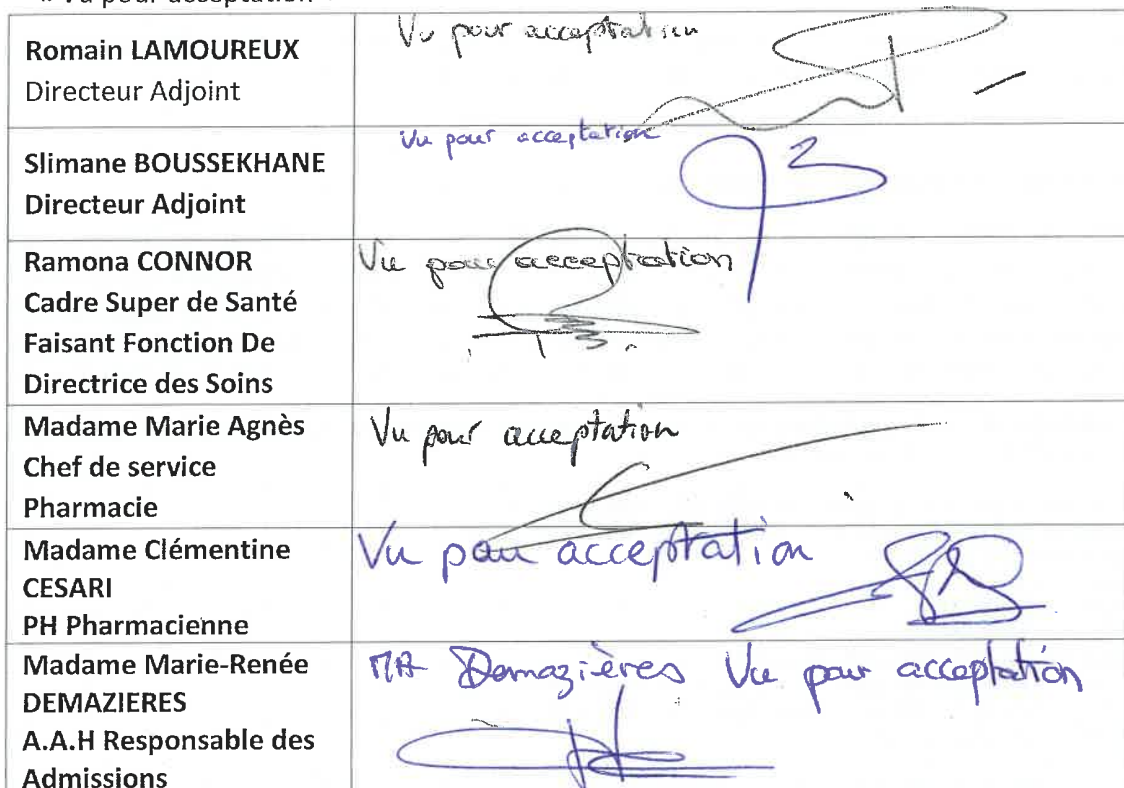 « Vu pour acceptation
Romain LAMOUREUX
Directeur Adjoint
Vu pour acceptation
Slimane BOUSSEKHANE
Directeur Adjoint
Vu pour acceptation
Ramona CONNOR
Cadre Super de Santé
Faisant Fonction De
Directrice des Soins
Vu pour acceptation
Madame Marie Agnès
Chef de service
Pharmacie
Vu pour acceptation
Madame Clémentine
CESARI
PH Pharmacienne
Vu pour acceptation
Madame Marie-Renée
DEMAZIERES
A.A.H Responsable des
Admissions
Demazières Vu pour acceptation